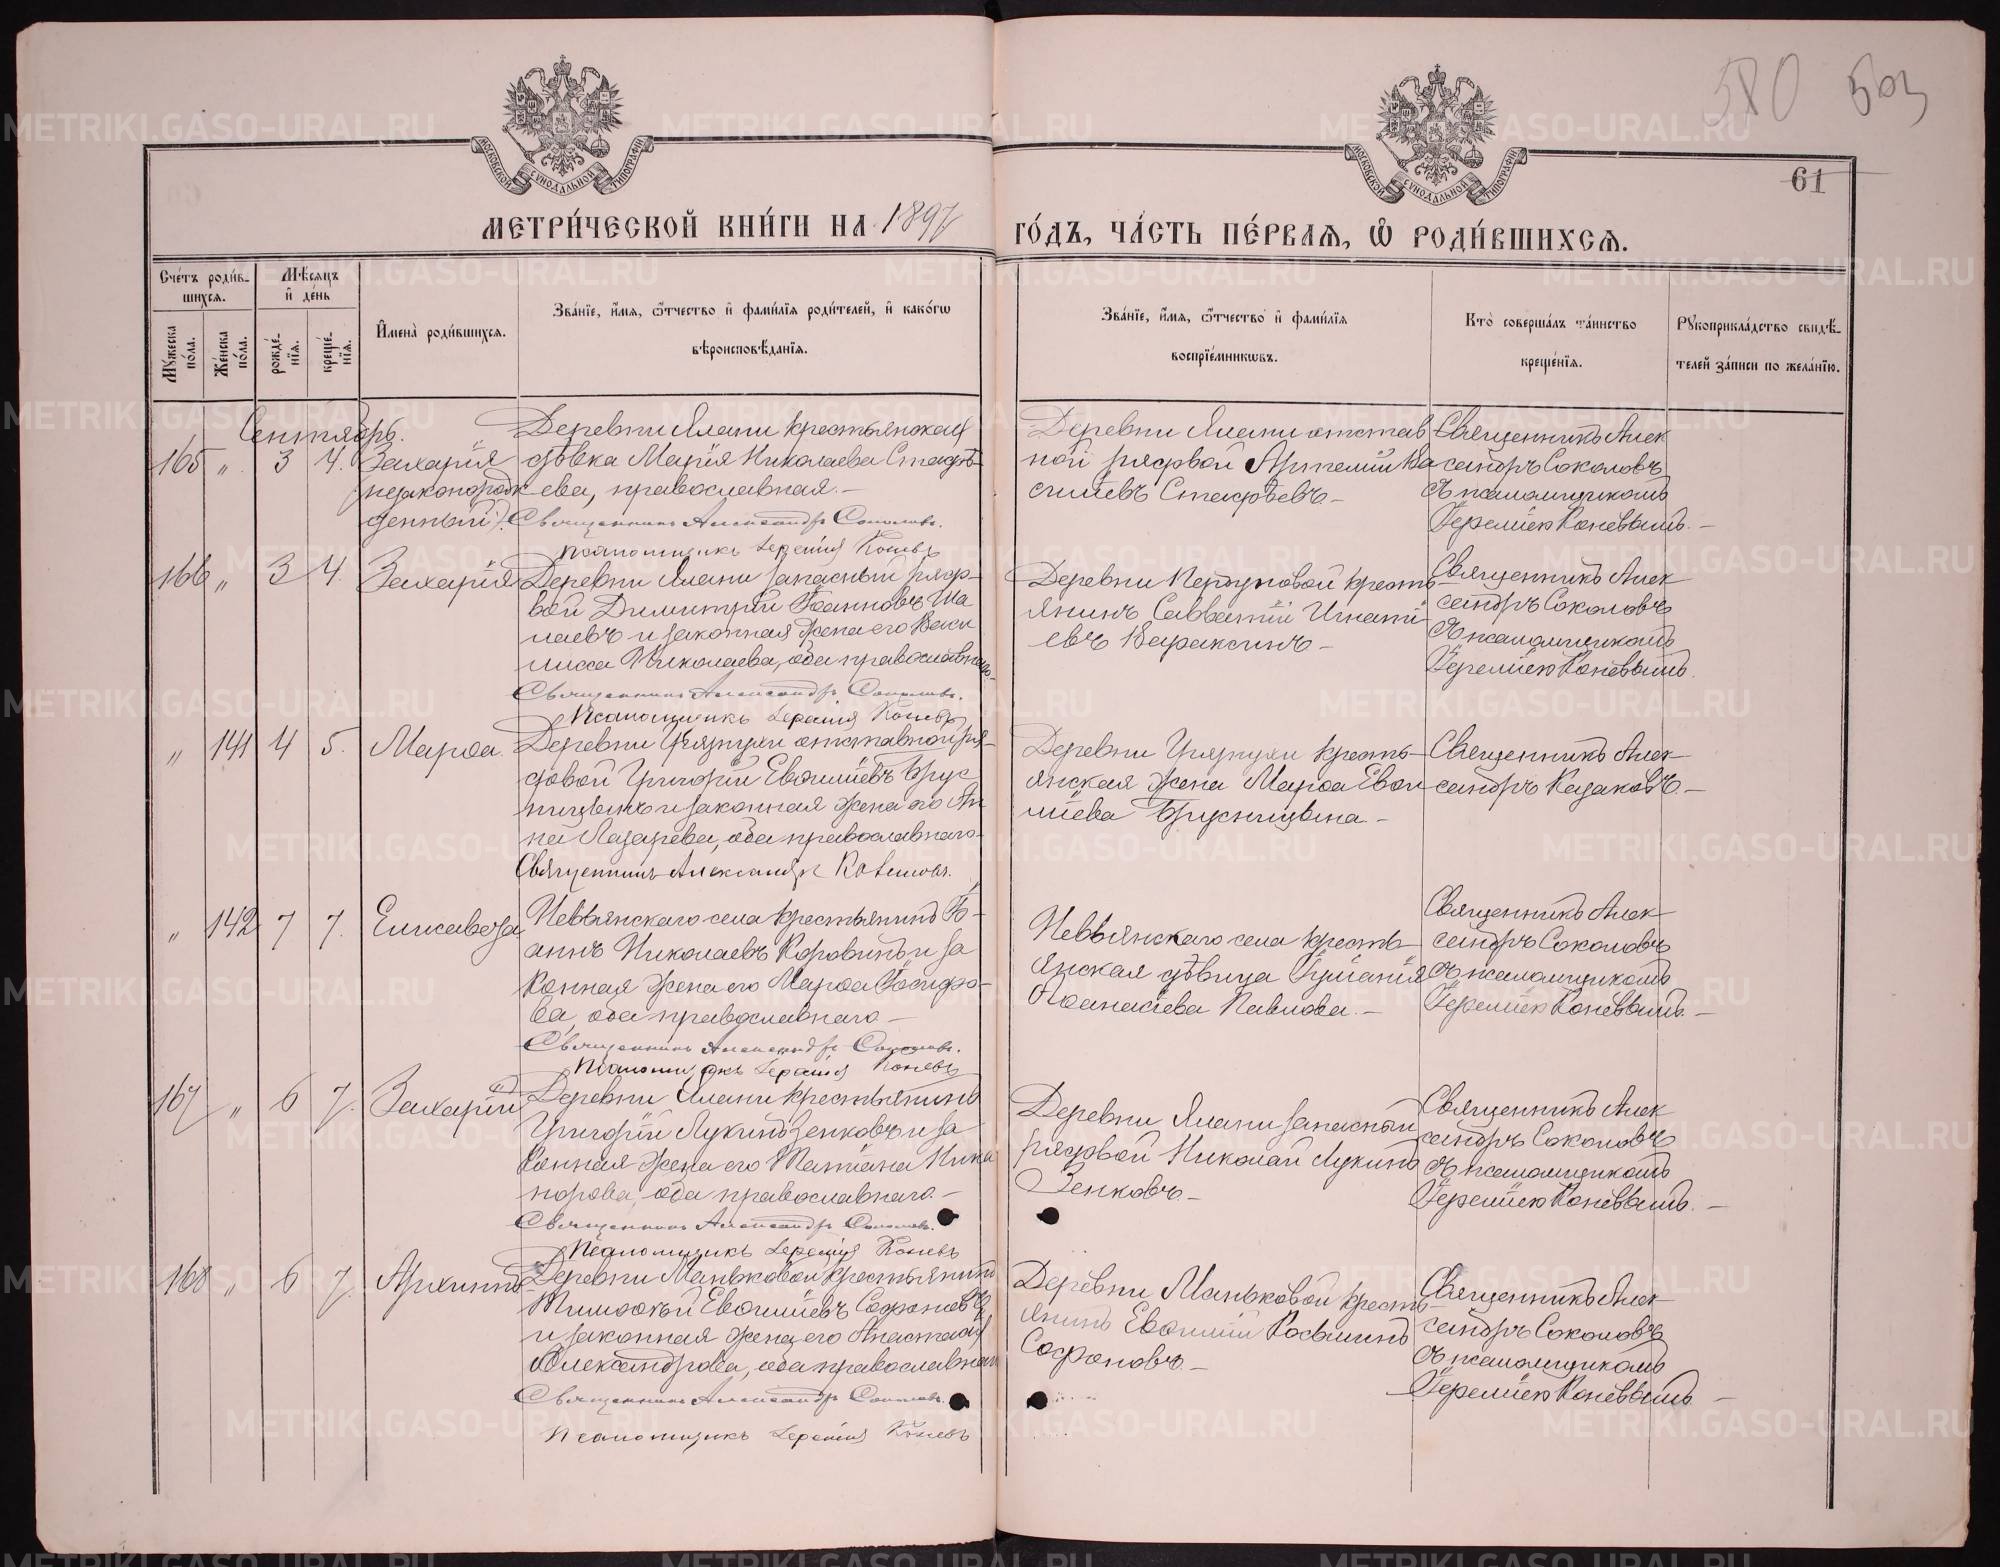 580 503
61
МОСКОВСКОЙ СѴНОДАЛЬНОЙ ТИПОГРАФІИ
МОСКОВСКОЙ СѴНОДАЛЬНОЙ ТИПОГРАФІИ
МЕТРИ́ЧЕСКОЙ КНИ́ГИ НА 1897 ГО́ДЪ, ЧА́СТЬ ПЕ́РВАЯ, Ѽ РОДИ́ВШИХСЯ.
Сче́тъ роди́в-
шихся.
Мѣ́сяцъ
и҆ де́нь
Мꙋ́жеска
по́ла.
Же́нска
по́ла.
рожде́-
нїя.
креще́-
нїя.
И҆мена̀ роди́вшихся.
Зва́нїе, и҆́мя, ѻ҆́тчество и҆ фами́лїя роди́телей, и҆ како́гѡ
вѣроисповѣ́данїя.
Зва́нїе, и҆́мя, ѻ҆́тчество и҆ фами́лїя
воспрїе́мникѡвъ.
Кто̀ соверша́лъ та́инство
креще́нїя.
Рꙋкоприкла́дство свидѣ́-
телей за́писи по жела́нїю.
Сентябрь.
165 „ 3 4.
Захарія
(незаконорож
денный).
Деревни Ялани крестьянская
дѣвка Марія Николаева Стафѣ-
ева, православная.—
Священникъ Александръ Соколовъ.
Псаломщикъ Іеремія Коневъ
Деревни Ялани отстав
ной рядовой Артемій Ва
сильевъ Стафѣевъ.—
Священникъ Алек
сандръ Соколовъ
съ псаломщикомъ
Іереміею Коневымъ.—
166 „ 3 4.
Захарія
Деревни Ялани запасный рядо-
вой Димитрій Іоанновъ
и законная жена его Васи
лисса Николаева, оба православнаго.
Священникъ Александръ Соколовъ.
Псаломщикъ Іеремія Коневъ
Деревни крестъ-
янинъ Савватій Игнаті
евъ —
Священникъ Алек
сандръ Соколовъ
съ псаломщикомъ
Іереміею Коневымъ.
„ 141 4 5.
Марѳа.
Деревни отставной ря-
довой Григорій Евѳиміевъ Брус
ницынъ и законная жена его Ан
на Лазарева, оба православнаго.
Священникъ Александръ Казаковъ.
Деревни крестъ-
янская жена Марѳа Евѳи
міева Брусницына.—
Священникъ Алек-
сандръ Казаковъ.—
„ 142 7 7.
Елисавета
Невьянскаго села крестьянинъ Іо-
аннъ Николаевъ Коровинъ и за
конная жена его Марѳа Іосифо-
ва, оба православнаго.—
Священникъ Александръ Соколовъ.
Псаломщикъ Іеремія Коневъ
Невьянскаго села кресть-
янская дѣвица Іуліанія
Аѳанасіева Павлова.—
Священникъ Алек-
сандръ Соколовъ
съ псаломщикомъ
Іереміею Коневымъ.—
167 „ 6 7.
Захарій
Деревни Ялани крестьянинъ
Григорій Лукинъ Зенковъ и за
конная жена его Татіана Ника
норова, оба православнаго.—
Священникъ Александръ Соколовъ.
Псаломщикъ Іеремія Коневъ
Деревни Ялани запасный
рядовой Николай Лукинъ
Зенковъ.—
Священникъ Алек
сандръ Соколовъ
съ псаломщикомъ
Іереміею Коневымъ.—
168 „ 6 7.
Архиппъ
Деревни Маньковой крестьянинъ
Тимоѳей Евѳиміевъ Софоновъ
и законная жена его Анастасія
Александрова, оба православнаго
Священникъ Александръ Соколовъ.
Псаломщикъ Іеремія Коневъ
Деревни Маньковой кресть-
янинъ Евѳимій Косьминъ
Софоновъ.—
Священникъ Алек-
сандръ Соколовъ
съ псаломщикомъ
Іереміею Коневымъ.—
METRIKI.GASO-URAL.RU